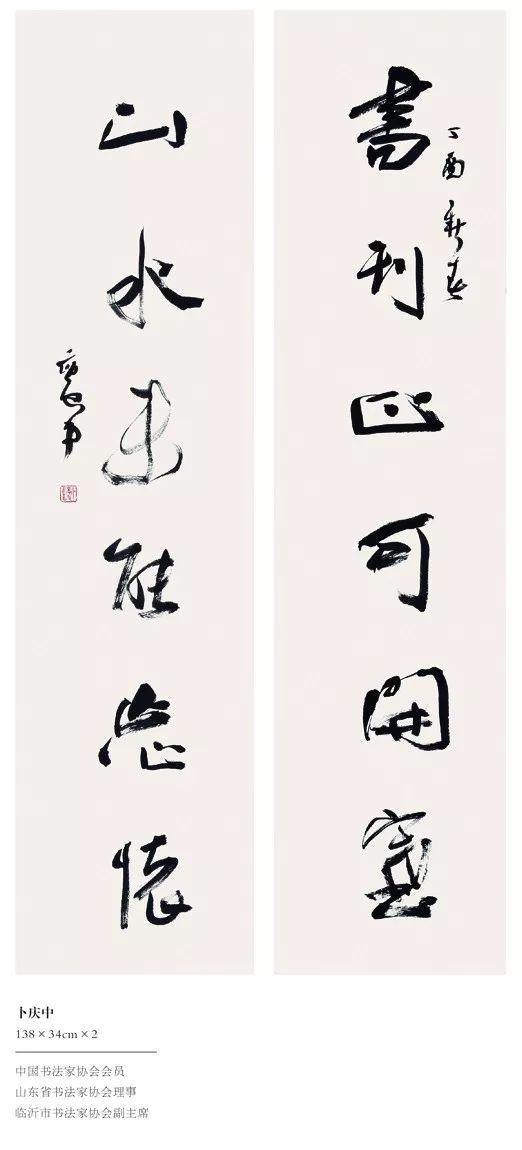 丁酉新春
書刊正可開
山水未能忘懷
慶中
卜庆中
138×34cm×2
中国书法家协会会员
山东省书法家协会理事
临沂市书法家协会副主席